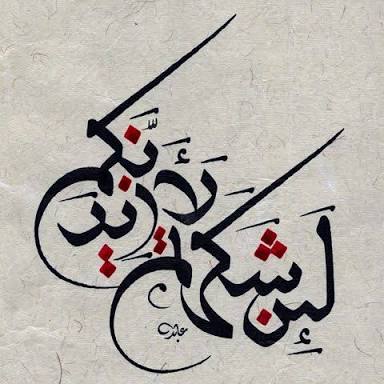 لَئِن شَكَرتُم
لَأَزِيدَنَّكُم